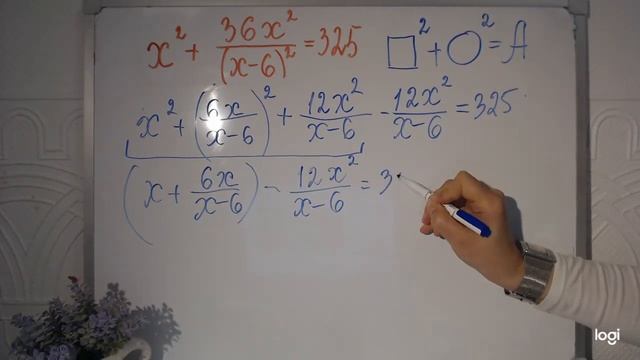 x² + 36x²/(x-6)² = 325 □² + ○² = A
x² + (6x/(x-6))² + 12x²/(x-6) - 12x²/(x-6) = 325
(x + 6x/(x-6)) - 12x²/(x-6) = 3
logi